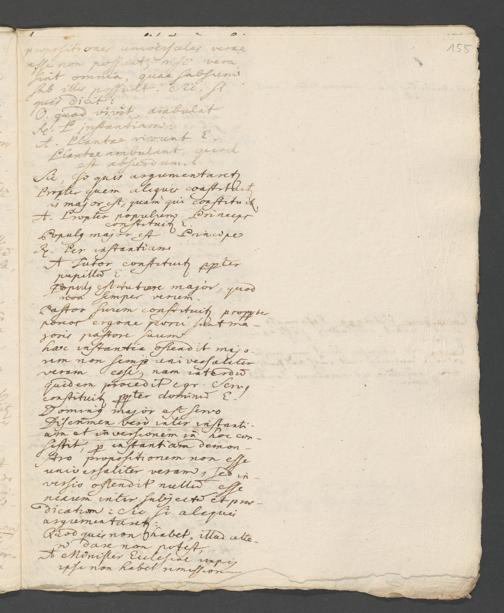 155
propositiones universales verae
esse non possunt, nisi vera
sint omnia, quae subsumi
sub illis possunt. Sic, si
quis dicat:
O. quod vivit ambulat
R. P. instantiam.
A. Plantae vivunt E.
Plantae ambulant, quod
est absurdum.
Sic, si quis argumentaret
Propter quem aliquis constituit,
is major est, quam qui constituit
A. Propter populum Princeps
constituit E.
Populus major est Principe
R. Per instantiam
A Tutor constituit ppter
pupillum E
Pupillus est tutore major, quod
non semper verum.
Pastor suum constituit propter
porcos ergone porci sunt ma-
joris pastore suum
haec instantia ostendit majo-
rem non semper universaliter
veram esse, nam interdum
quidem procedit egr. Servus
constituit ppter dominum E.
Dominus major est servo
Discrimen vero inter instanti-
am et inversionem in hoc con-
sistit, per instantiam demon-
stro propositionem non esse
universaliter veram, sed in-
versio ostendit nullum esse
nexum inter subjectum et prae-
dicatum: Sic si aliquis
argumentaret.
Quod quis non habet, illud alte-
ri dare non potest,
A Minister Ecclesiae
ipse non habet remissionem